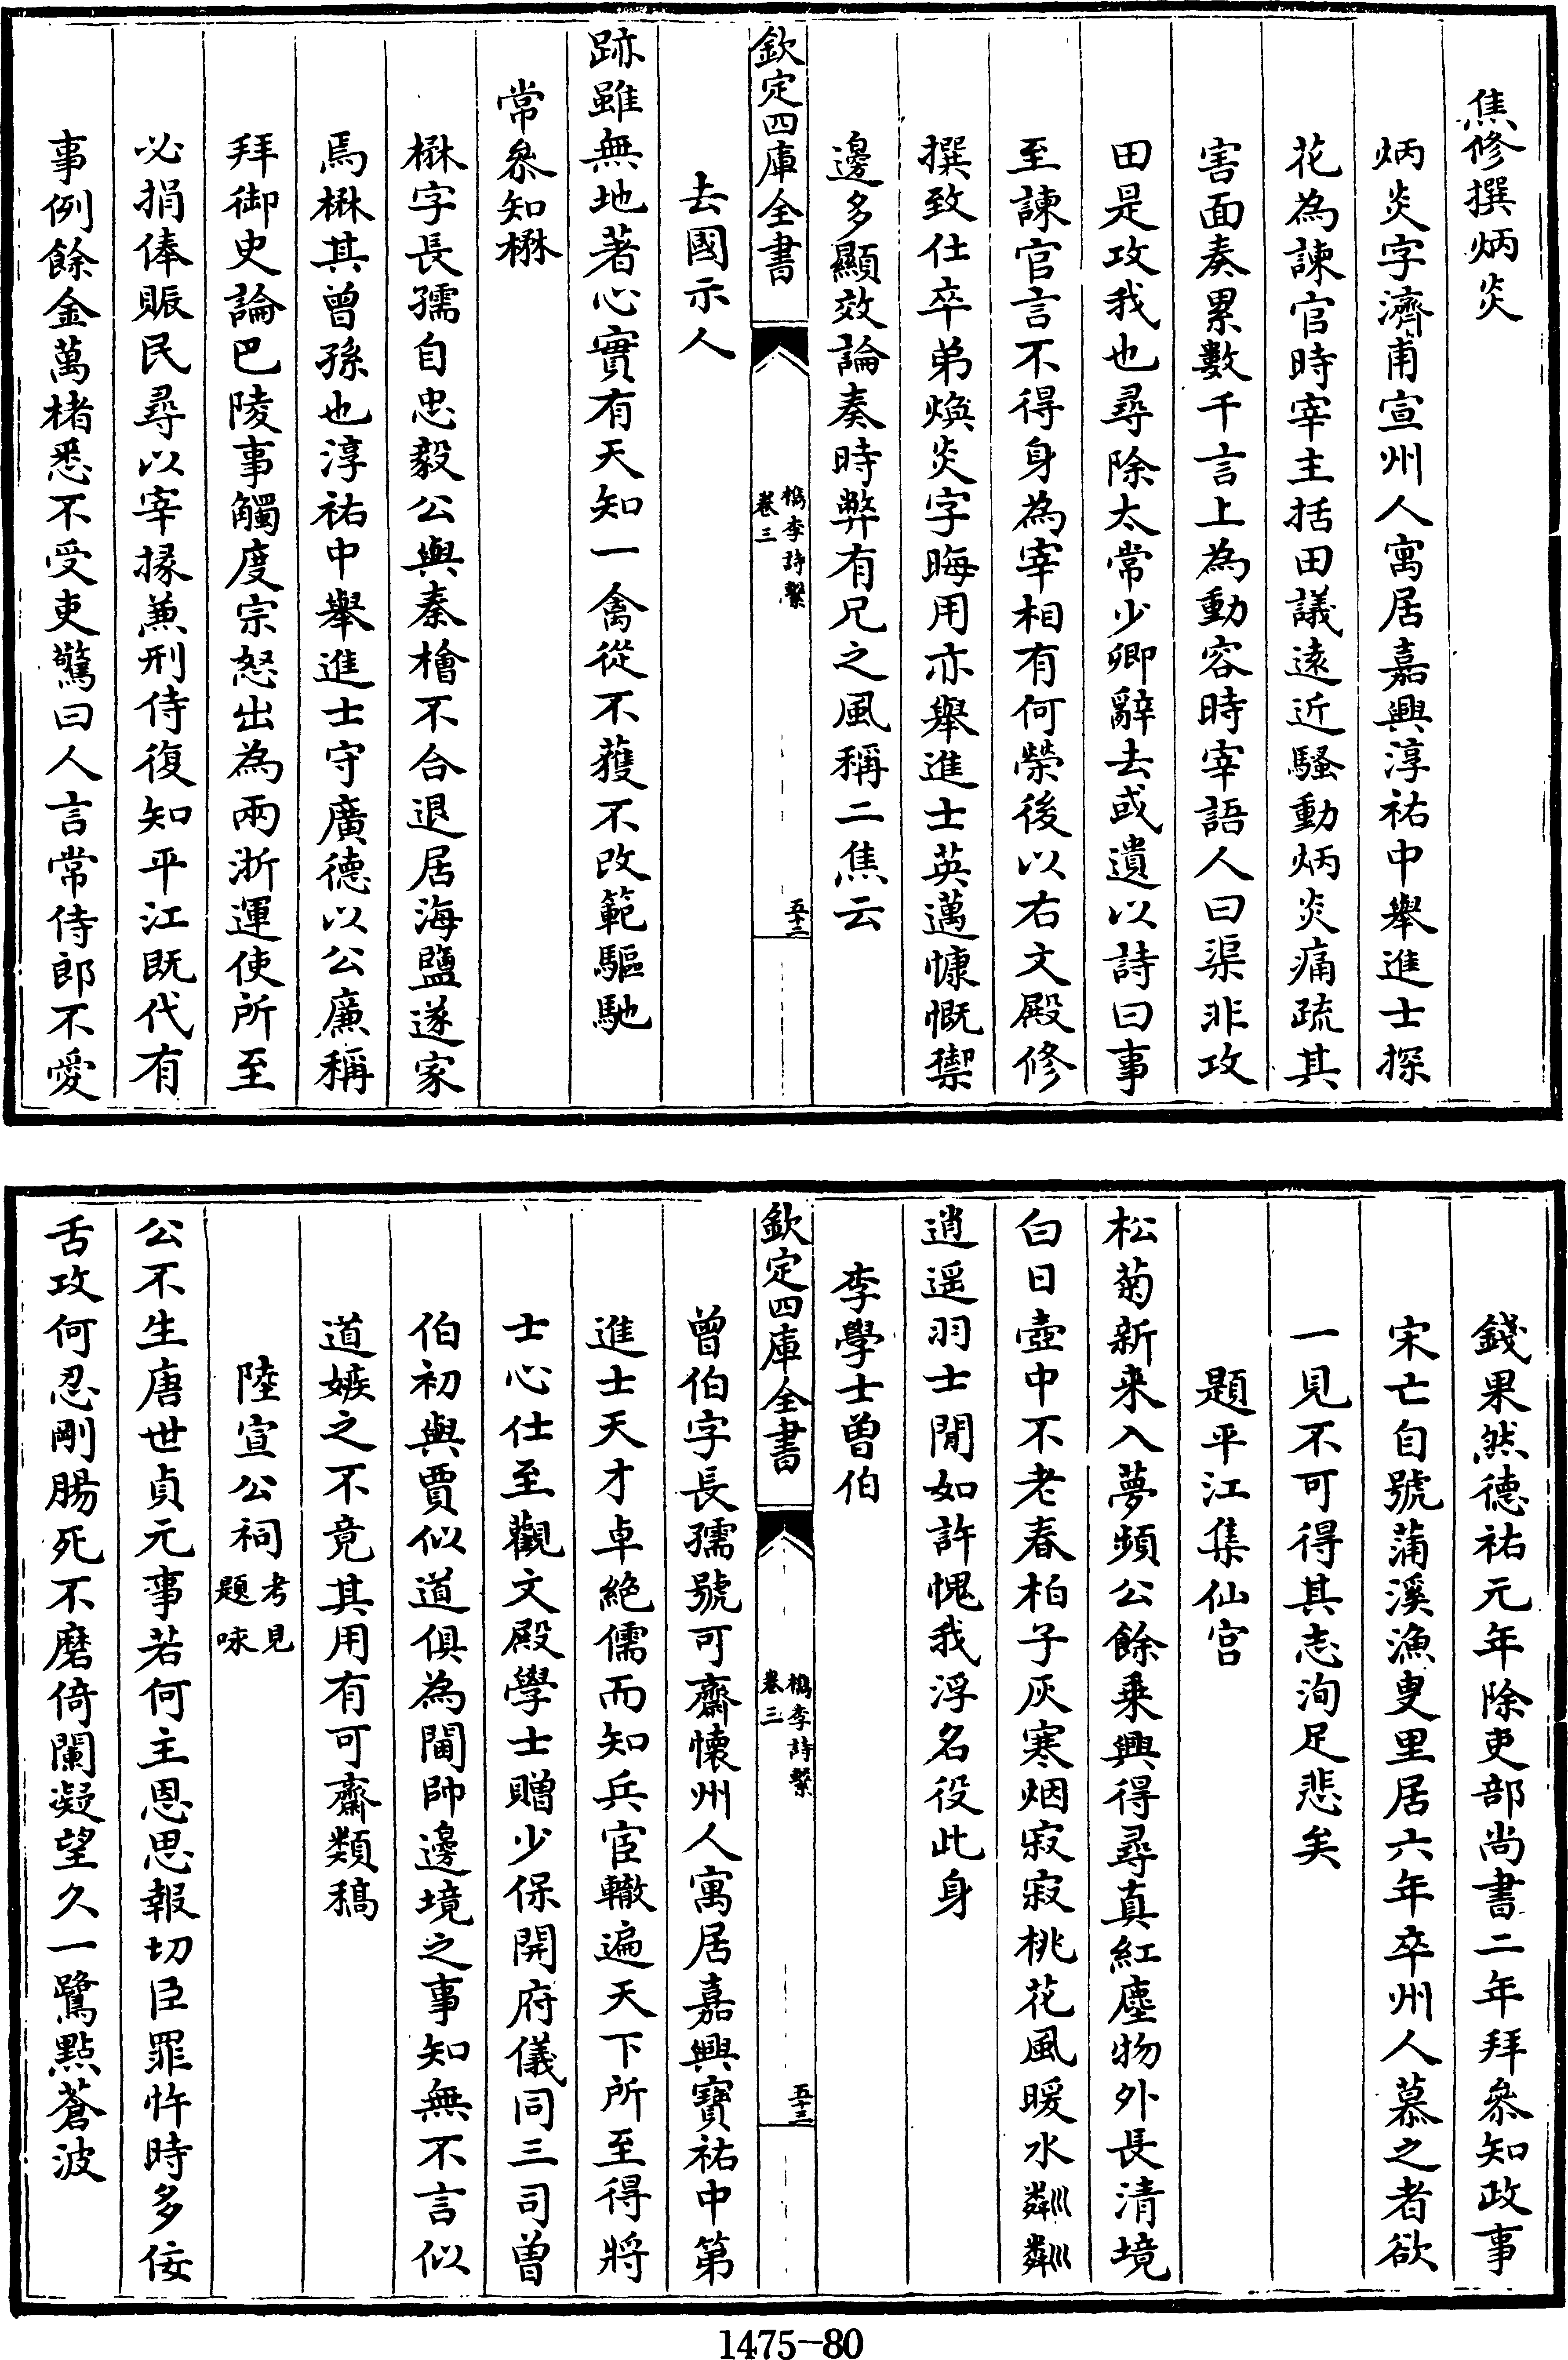 焦修撰炳炎
炳炎字濟甫宣州人寓居嘉興淳祐中舉進士探
花為諫官時宰主括田議逺近騷動炳炎痛疏其
害面奏累數千言上為動容時宰語人曰渠非攻
田是攻我也尋除太常少卿辭去或遺以詩曰事
至諫官言不得身為宰相有何榮後以右文殿修
撰致仕卒弟煥炎字晦用亦舉進士英邁慷慨禦
邊多顯效論奏時弊有兄之風稱二焦云
欽定四庫全書
檇李詩繫
卷三
五十二
去國示人
跡雖無地著心實有天知一禽從不蒦不改範驅馳
常叅知楙
楙字長孺自忠毅公與秦檜不合退居海鹽遂家
焉楙其曾孫也淳祐中舉進士守廣德以公亷稱
拜御史論巴陵事觸度宗怒出為兩浙運使所至
必捐俸賑民尋以宰掾兼刑侍復知平江既代有
事例餘金萬楮悉不受吏驚曰人言常侍郎不愛
錢果然德祐元年除吏部尚書二年拜叅知政事
宋亡自號蒲溪漁叟里居六年卒州人慕之者欲
一見不可得其志洵足悲矣
題平江集仙宫
松菊新来入夢頻公餘乗興得尋真紅塵物外長清境
白日壺中不老春柏子灰寒烟寂寂桃花風暖水粼粼
逍遥羽士閒如許愧我浮名役此身
李學士曽伯
欽定四庫全書
檇李詩繫
卷三
五十三
曽伯字長孺號可齋懐州人寓居嘉興寶祐中第
進士天才卓絶儒而知兵宦轍遍天下所至得將
士心仕至觀文殿學士贈少保開府儀同三司曽
伯初與賈似道俱為閫帥邊境之事知無不言似
道嫉之不竟其用有可齋類稿
陸宣公祠考見題咏
公不生唐世貞元事若何主恩思報切臣罪忤時多佞
舌攻何忍剛腸死不磨倚闌凝望久一鷺點蒼波
1475-80